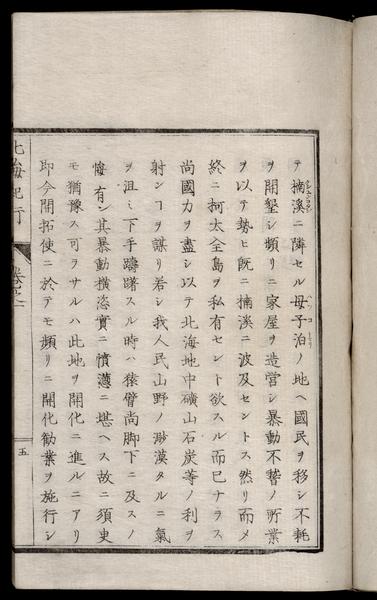 テ楠溪ニ隣セル母子泊ノ地ヘ國民ヲ移シ不耗
ヲ開墾シ頻リニ家屋ヲ造営シ暴動不贄ノ所業
ヲ以テ勢ヒ既ニ楠溪ニ波及セントス然リ而メ
終ニ柯太全島ヲ私有セント欲スル而已ナラス
尚國力ヲ盡シ以テ北海地中礦山石炭等ノ利ヲ
射ンヿヲ謀リ若シ我人民山野ノ渺漠タルニ氣
ヲ沮ミ下手躊躇スル時ハ猿臂尚脚下ニ及スノ
悔有ン其暴動横恣實ニ憤懣ニ堪ヘス故ニ須臾
モ猶豫ス可ヲサルハ此地ヲ開化ニ進ルニアリ
即今開拓使ニ於テモ頻リニ開化勧業ヲ施行シ
北海紀行
卷之一
五